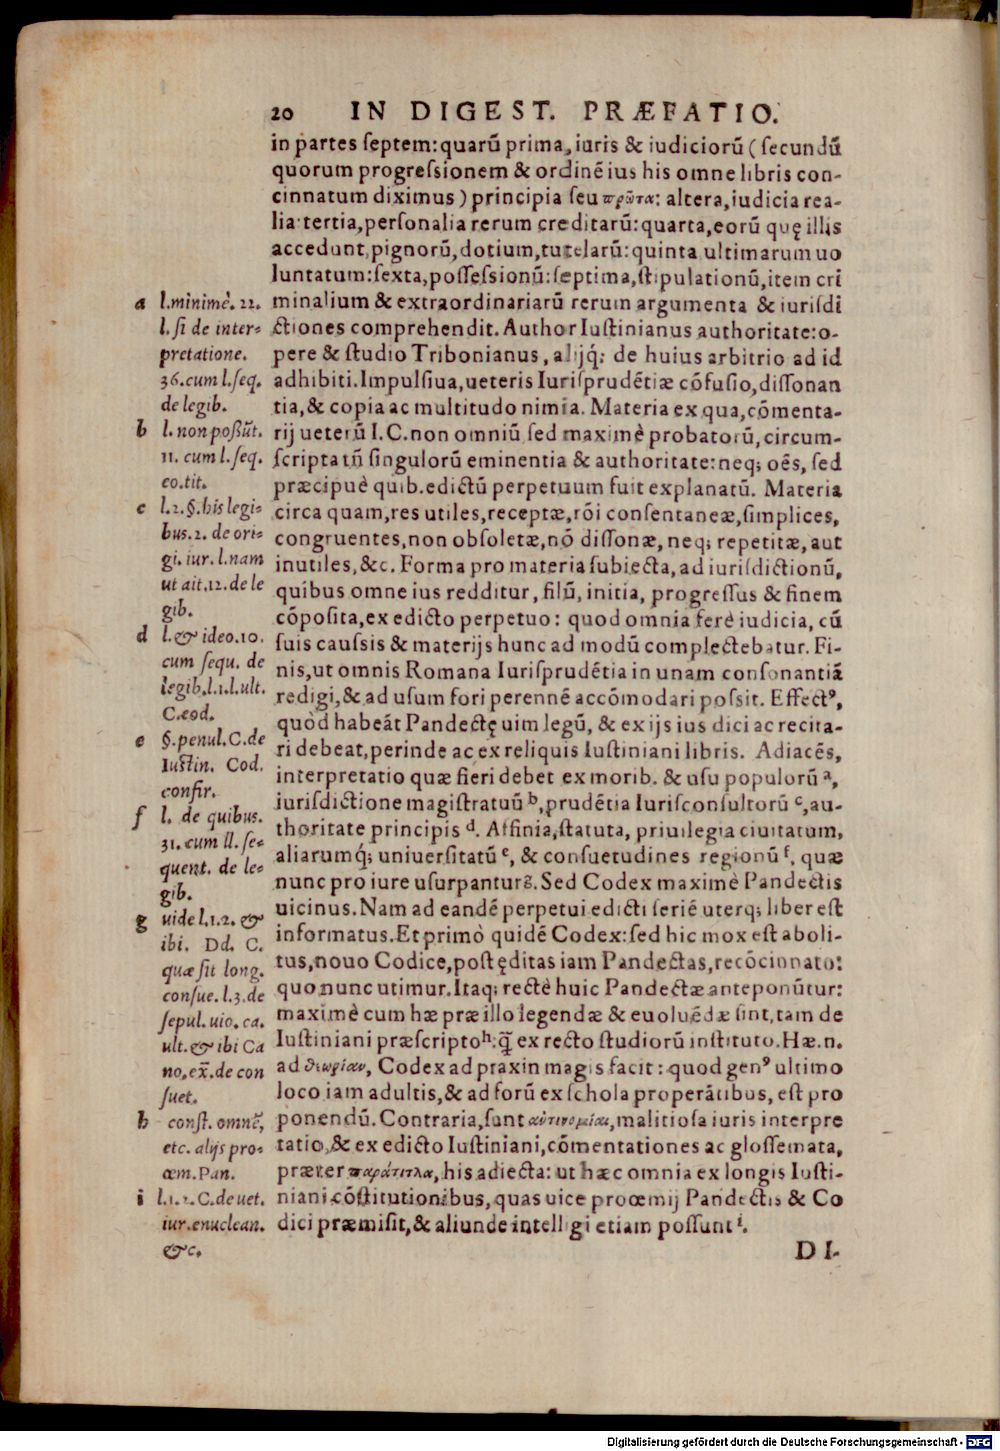 20 IN DIGEST. PRÆFATIO.
in partes ſeptem: quarū prima, iuris & iudiciorū (ſecundū
quorum progreſsionem & ordinē ius his omne libris con-
cinnatum diximus) principia ſeu πρῶτα: altera, iudicia rea-
lia: tertia, perſonalia rerum creditarū: quarta, eorū quę illis
accedunt, pignorū, dotium, tutelarū: quinta ultimarum uo
luntatum: ſexta, poſſeſsionū: ſeptima, ſtipulationū, item cri
minalium & extraordinariarū rerum argumenta & iuriſdi
ctiones comprehendit. Author Iuſtinianus authoritate: o-
pere & ſtudio Tribonianus, alijq́; de huius arbitrio ad id
adhibiti. Impulſiua, ueteris Iuriſprudētiæ cōfuſio, diſſonan
tia, & copia ac multitudo nimia. Materia ex qua, cōmenta-
rij ueterū I.C. non omniū ſed maximè probatorū, circum-
ſcripta tū ſingulorū eminentia & authoritate: neq; oēs, ſed
præcipuè quib. edictū perpetuum fuit explanatū. Materia
circa quam, res utiles, receptæ, rōi conſentaneæ, ſimplices,
congruentes, non obſoletæ, nō diſſonæ, neq; repetitæ, aut
inutiles, &c. Forma pro materia ſubiecta, ad iuriſdictionū,
quibus omne ius redditur, filū, initia, progreſſus & finem
cōpoſita, ex edicto perpetuo: quod omnia ferè iudicia, cū
ſuis cauſsis & materijs hunc ad modū complectebatur. Fi-
nis, ut omnis Romana Iuriſprudētia in unam conſonantiā
redigi, & ad uſum fori perennē accōmodari poſsit. Effectꝰ,
quòd habeāt Pandectę uim legū, & ex ijs ius dici ac recita-
ri debeat, perinde ac ex reliquis Iuſtiniani libris. Adiacēs,
interpretatio quæ fieri debet ex morib. & uſu populorū a,
iuriſdictione magiſtratuū b, prudētia Iuriſconſultorū c, au-
thoritate principis d. Affinia, ſtatuta, priuilegia ciuitatum,
aliarumq́; uniuerſitatū e, & conſuetudines regionū f, quæ
nunc pro iure uſurpantur g. Sed Codex maximè Pandectis
uicinus. Nam ad eandē perpetui edicti ſeriē uterq; liber eſt
informatus. Et primò quidē Codex: ſed hic mox eſt aboli-
tus, nouo Codice, poſt ęditas iam Pandectas, recōcinnato:
quo nunc utimur. Itaq; rectè huic Pandectæ anteponūtur:
maximè cum hæ præ illo legendæ & euoluēdæ ſint, tam de
Iuſtiniani præſcripto h: q̄ ex recto ſtudiorū inſtituto. Hæ. n.
ad θεωρίαν, Codex ad praxin magis facit: quod genꝰ ultimo
loco iam adultis, & ad forū ex ſchola properātibus, eſt pro
ponendū. Contraria, ſunt ἀντινομίαι, malitioſa iuris interpre
tatio, & ex edicto Iuſtiniani, cōmentationes ac gloſſemata,
præter παράτιτλα, his adiecta: ut hæc omnia ex longis Iuſti-
niani cōſtitutionibus, quas uice procœmij Pandectis & Co
dici præmiſit, & aliunde intelligi etiam poſſunt i.
DI-
a l. minimè. 22.
l. ſi de inter-
pretatione.
36. cum l. ſeq.
de legib.
b l. non poßūt.
11. cum l. ſeq.
eo. tit.
c l. 2. §. his legi-
bus. 2. de ori-
gi. iur. l. nam
ut ait. 12. de le
gib.
d l. & ideo. 10.
cum ſequ. de
legib. l. 1. l. ult.
C. eod.
e §. penul. C. de
Iuſtin. Cod.
confir.
f l. de quibus.
31. cum ll. ſe-
quent. de le-
gib.
g uide l. 1. 2. &
ibi. Dd. C.
quæ ſit long.
conſue. l. 3. de
ſepul. uio. ca.
ult. & ibi Ca
no, ex̄. de con
ſuet.
h conſt. omnē,
etc. alijs pro-
œm. Pan.
i l. 1. 2. C. de uet.
iur. enuclean.
&c.
Digitalisierung gefördert durch die Deutsche Forschungsgemeinschaft - DFG